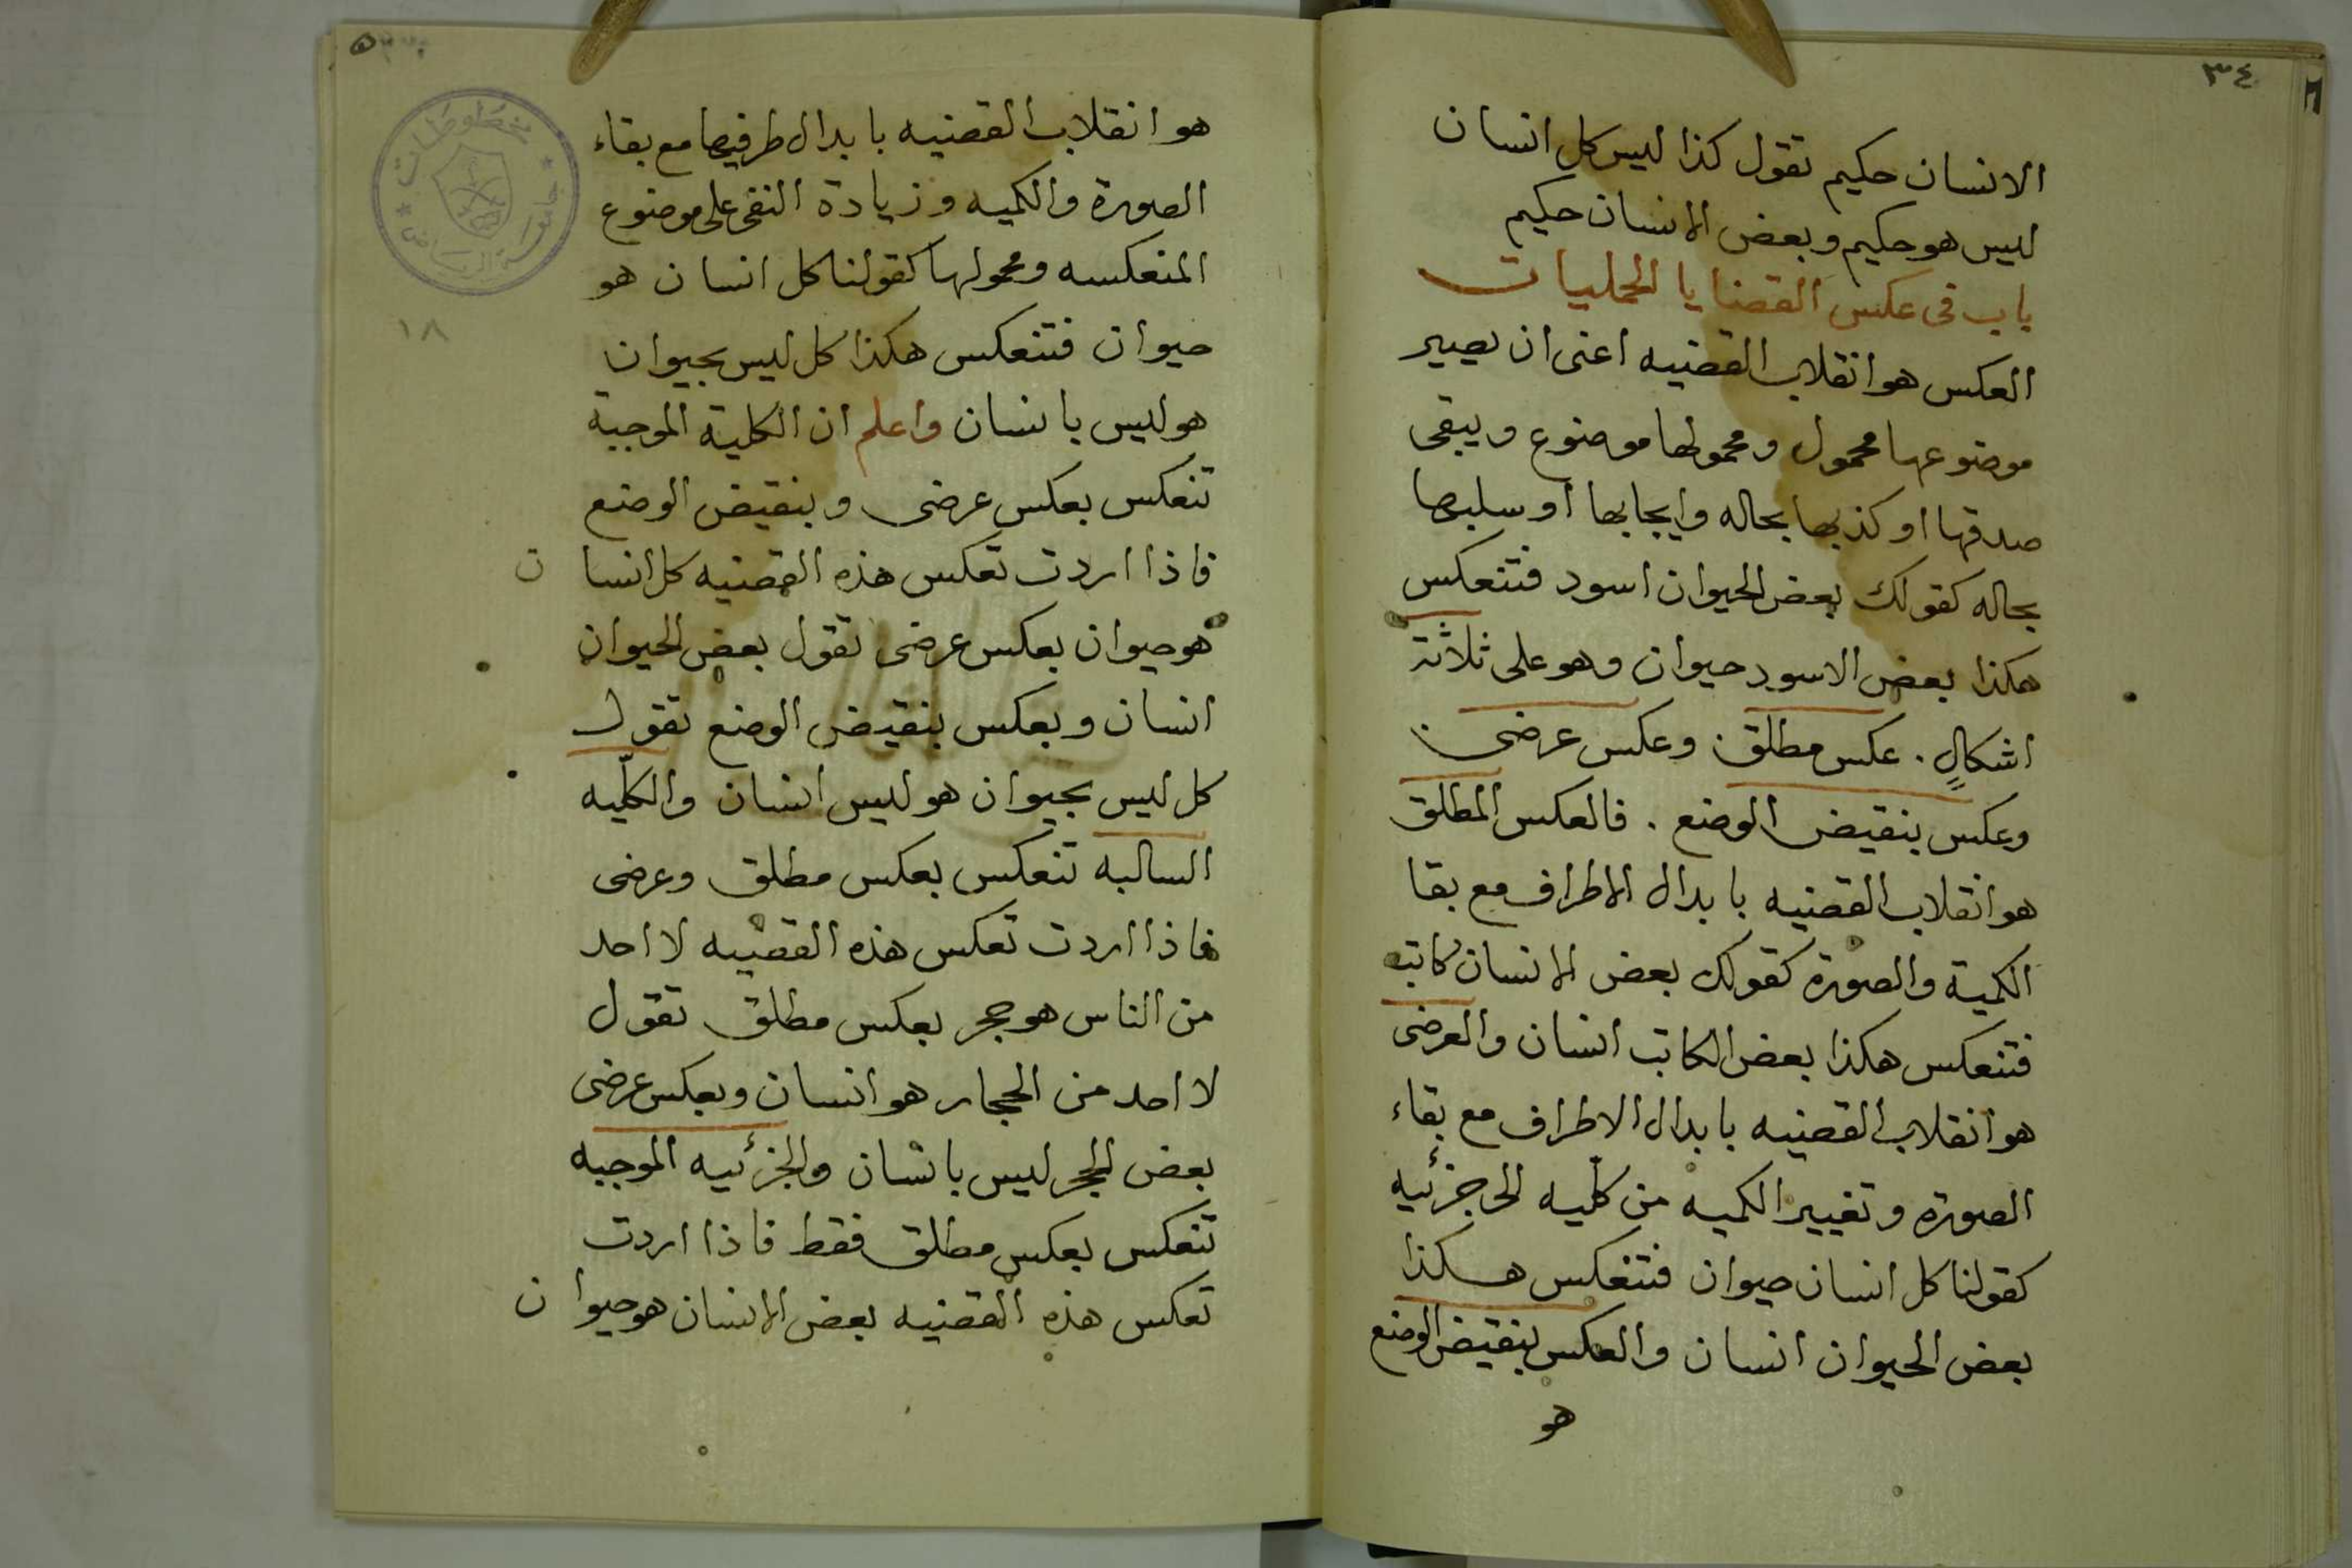 ٣٤
الانسان حكيم تقول كذا ليس كل انسان
ليس هو حكيم وبعض الانسان حكيم
باب في عكس القضايا الحمليات
العكس هو انقلاب القضيه اعنى ان يصير
موضوعها محمول ومحمولها موضوع ويبقى
صدقها او كذبها بحاله وايجابها او سلبها
بحاله كقولك بعض الحيوان اسود فتنعكس
هكذا بعض الاسود حيوان وهو على ثلاثة
اشكالٍ . عكس مطلق . وعكس عرضى .
وعكس بنقيض الوضع . فالعكس المطلق
هو انقلاب القضيه بابدال الاطراف مع بقا
الكمية والصورة كقولك بعض الانسان كاتب
فتنعكس هكذا بعض الكاتب انسان والعرضى
هو انقلاب القضيه بابدال الاطراف مع بقاء
الصورة وتغيير الكميه من كلّيه الى جزئيه
كقولنا كل انسان حيوان فتنعكس هكذا
بعض الحيوان انسان والعكس بنقيض الوضع
هو
هو انقلاب القضيه بابدال طرفيها مع بقاء
الصورة والكميه وزيادة النفى على موضوع
المنعكسه ومحمولها كقولنا كل انسان هو
حيوان فتنعكس هكذا كل ليس بحيوان
هو ليس بانسان واعلم ان الكلية الموجبة
تنعكس بعكس عرضى وبنقيض الوضع
فاذا اردت تعكس هذه القضيه كل انسان
هو حيوان بعكس عرضى تقول بعض الحيوان
انسان وبعكس بنقيض الوضع تقول
كل ليس بحيوان هو ليس انسان والكلّيه
السالبه تنعكس بعكس مطلق وعرضى
فاذا اردت تعكس هذه القضيه لا احد
من الناس هو حجر بعكس مطلق تقول
لا احد من الحجار هو انسان وبعكس عرضى
بعض الحجر ليس بانسان والجزئيه الموجبه
تنعكس بعكس مطلق فقط فاذا اردت
تعكس هذه القضيه بعض الانسان هو حيوان
مخطوطات
جامعة الرياض
١٨